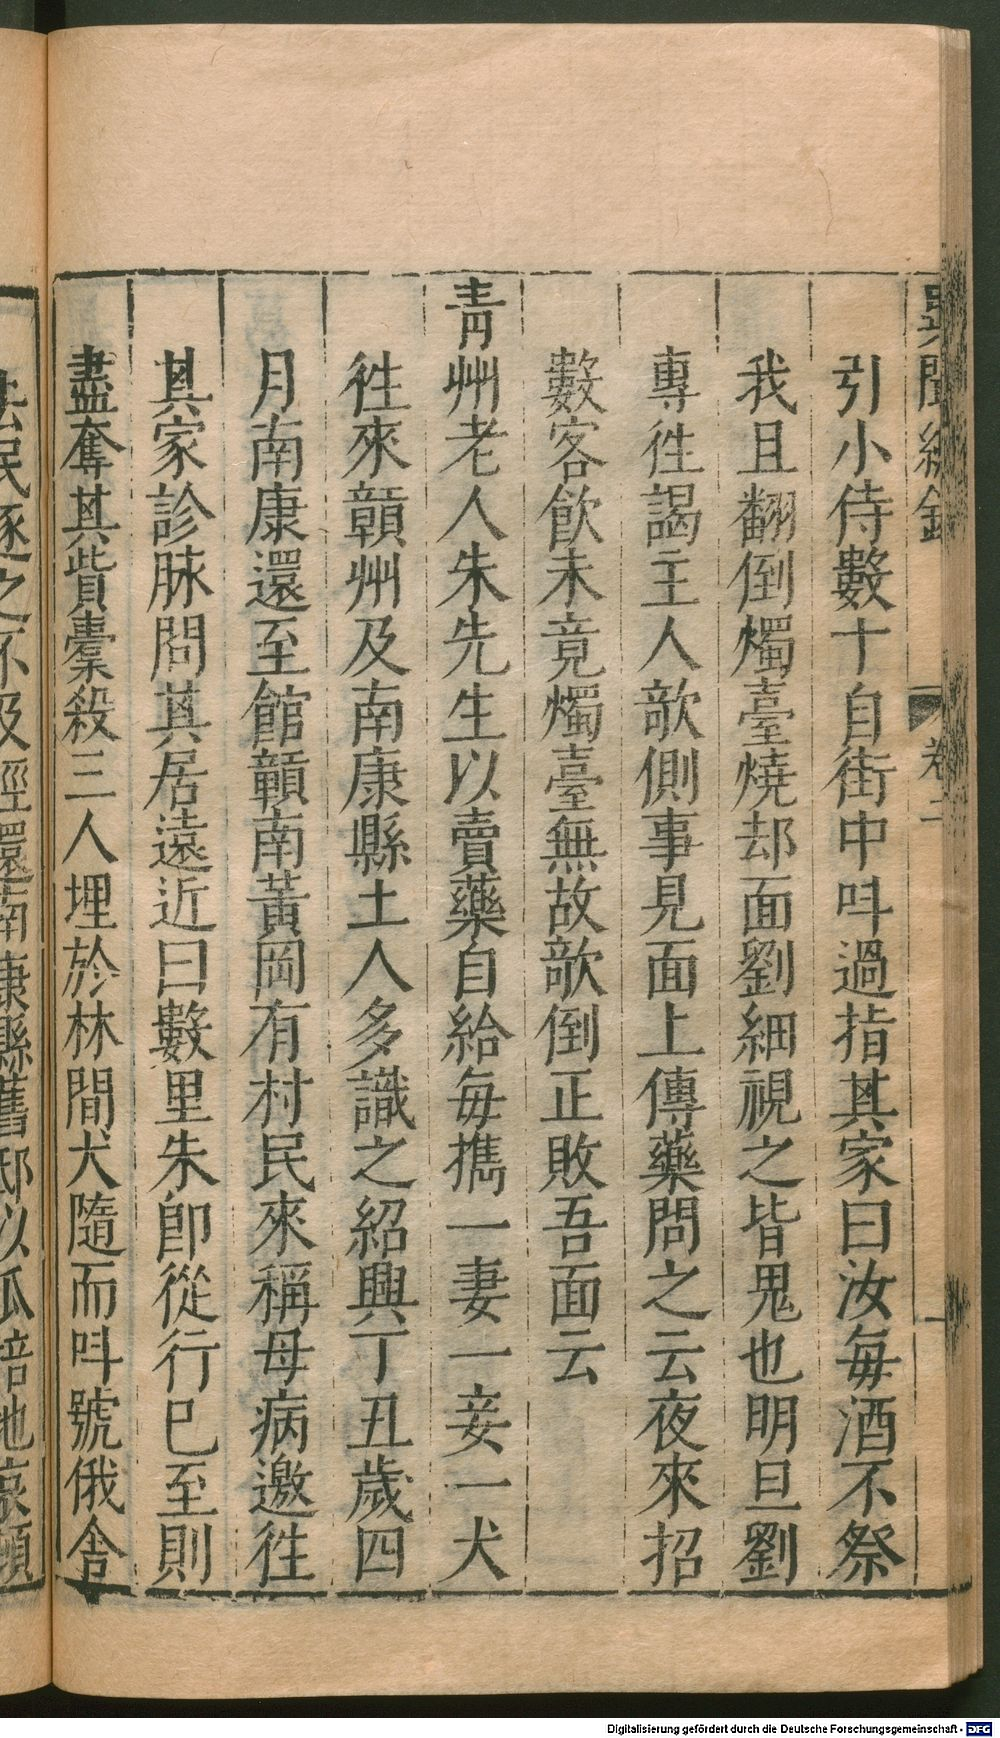 異聞總錄 卷二 一
引小侍數十自街中呌過指其家曰汝每酒不祭
我且翻倒燭臺燒却面劉細視之皆鬼也明旦劉
專徃謁主人欹側事見面上傅藥問之云夜來招
數客飮未竟燭臺無故欹倒正敗吾面云
青州老人朱先生以賣藥自給每攜一妻一妾一犬
徃來贑州及南康縣土人多識之紹興丁丑歲四
月南康還至館贑南黃岡有村民來稱母病邀徃
其家診脉問其居遠近曰數里朱即從行已至則
盡奪其貲橐殺三人埋於林間犬隨而呌號俄舍
去民逐之不及徑還南康縣舊邸以爪掊地哀頓
Digitalisierung gefördert durch die Deutsche Forschungsgemeinschaft - DFG